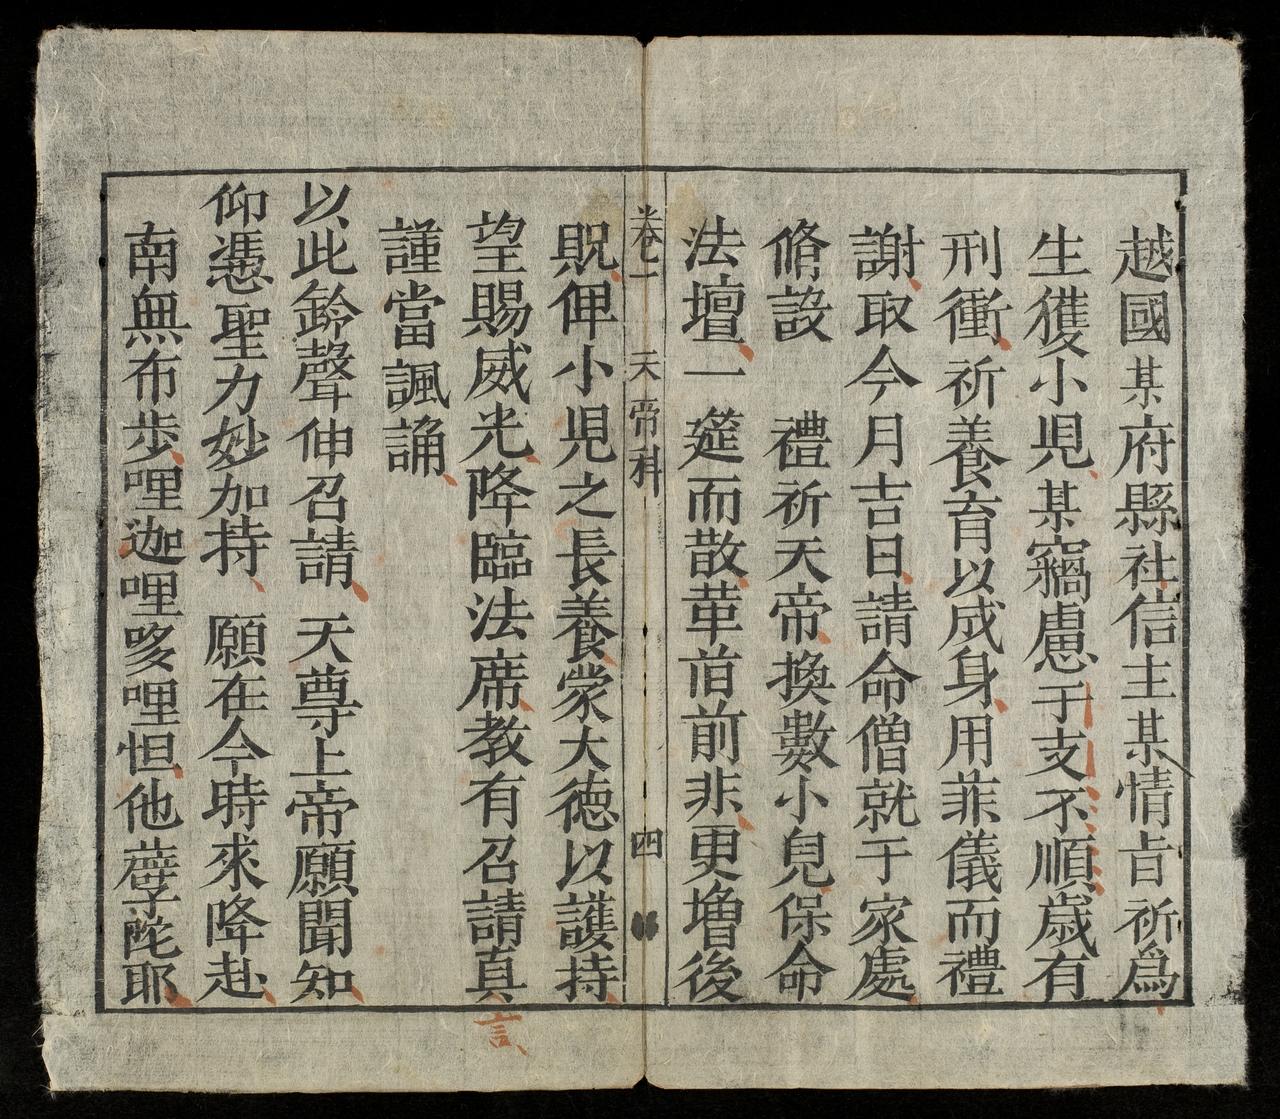 越國某府縣社信主某情旨祈爲
生獲小児某竊慮于支不順歲有
刑衝祈養育以成身用菲儀而禮
謝取今月吉日請命僧就于家處
脩設 禮祈天帝換數小兒保命
法壇一筵而散苹前前非更增後
卷一 天帝科 四
貺俾小児之長養蒙大德以護持
望賜威光降臨法席教有召請真
言
謹當諷誦
以此鈴聲伸召請 天尊上帝願聞知
仰憑聖力妙加持 願在今時來降赴
南無布步哩迦哩哆哩怛他蘖陀耶